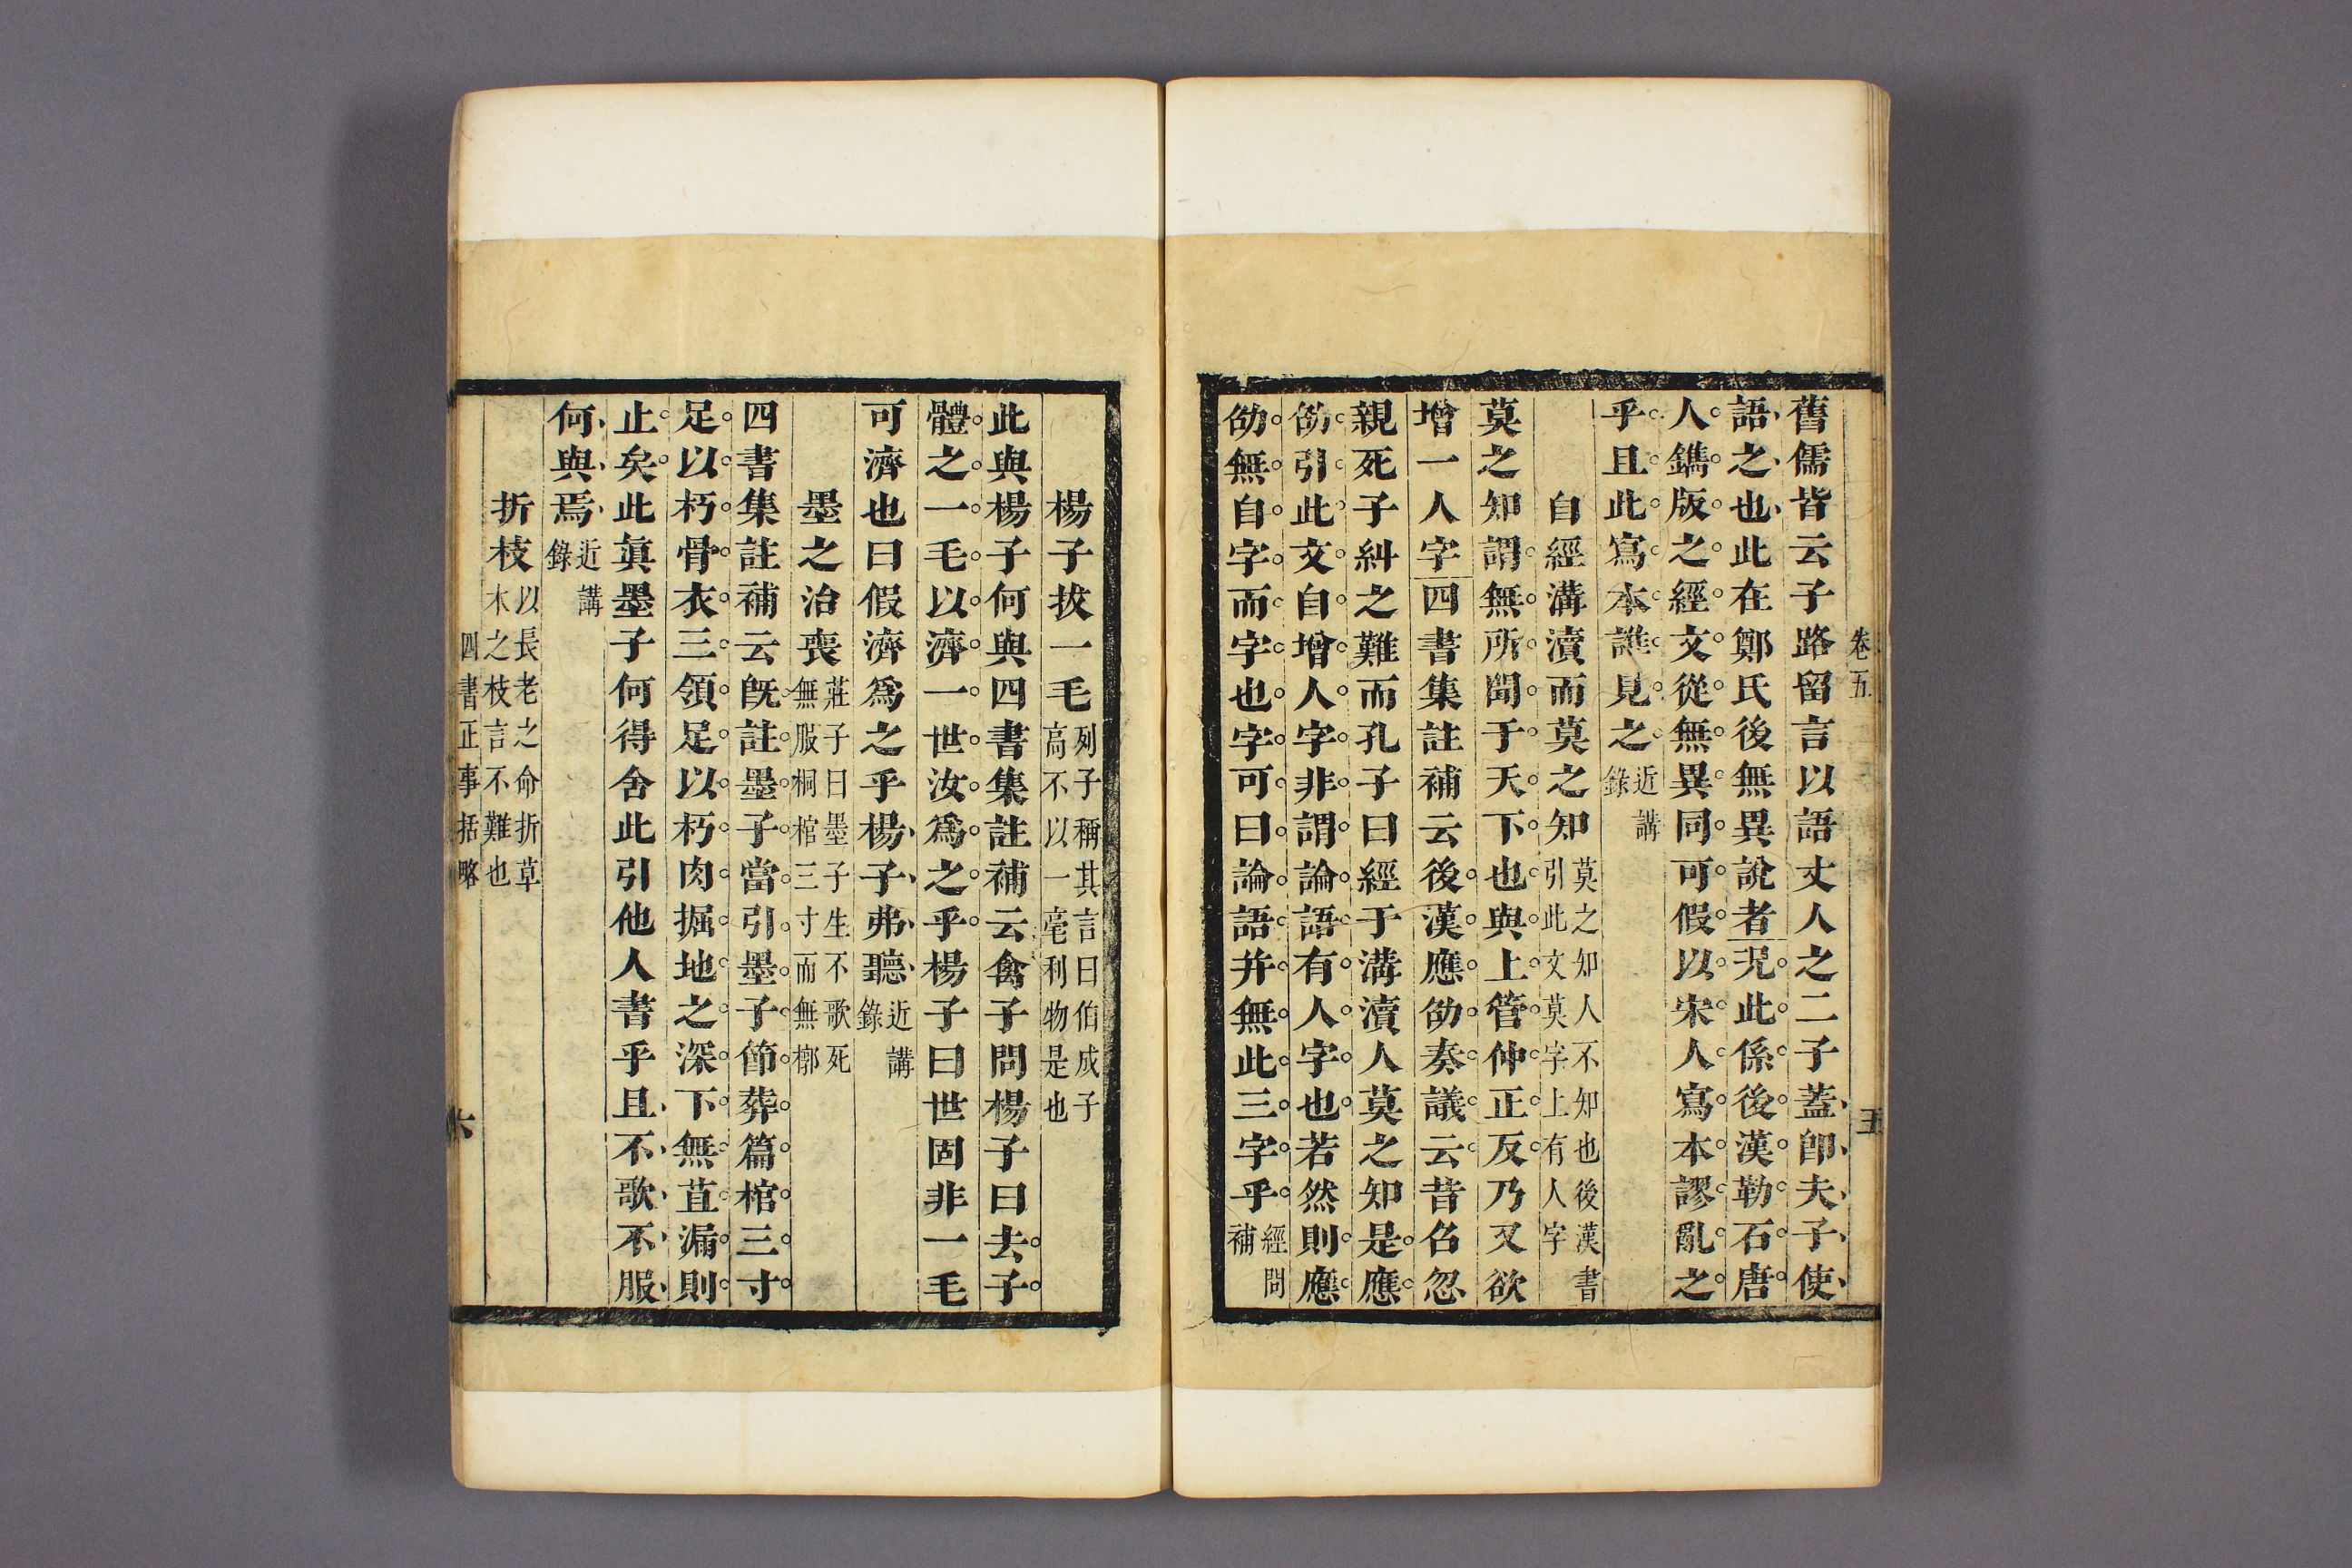 卷五
五
舊儒皆云子路留言以語丈人之二子蓋卽夫子使
語之也此在鄭氏後無異說者況此係後漢勒石唐
人鐫版之經文從無異同可假以宋人寫本謬亂之
乎且此寫本誰見之近講錄
自經溝瀆而莫之知莫之知人不知也後漢書引此文莫字上有人字
莫之知謂無所聞于天下也與上管仲正反乃又欲
增一人字四書集註補云後漢應劭奏議云昔召忽
親死子糾之難而孔子曰經于溝瀆人莫之知是應
劭引此文自增人字非謂論語有人字也若然則應
劭無自字而字也字可曰論語并無此三字乎經問補
楊子拔一毛列子稱其言曰伯成子高不以一毫利物是也
此與楊子何與四書集註補云禽子問楊子曰去子
體之一毛以濟一世汝爲之乎楊子曰世固非一毛
可濟也曰假濟爲之乎楊子弗聽近講錄
墨之治喪莊子曰墨子生不歌死無服桐棺三寸而無槨
四書集註補云旣註墨子當引墨子節葬篇棺三寸
足以朽骨衣三領足以朽肉掘地之深下無菹漏則
止矣此眞墨子何得舍此引他人書乎且不歌不服
何與焉近講錄
折枝以長老之命折草木之枝言不難也
四書正事括略
六